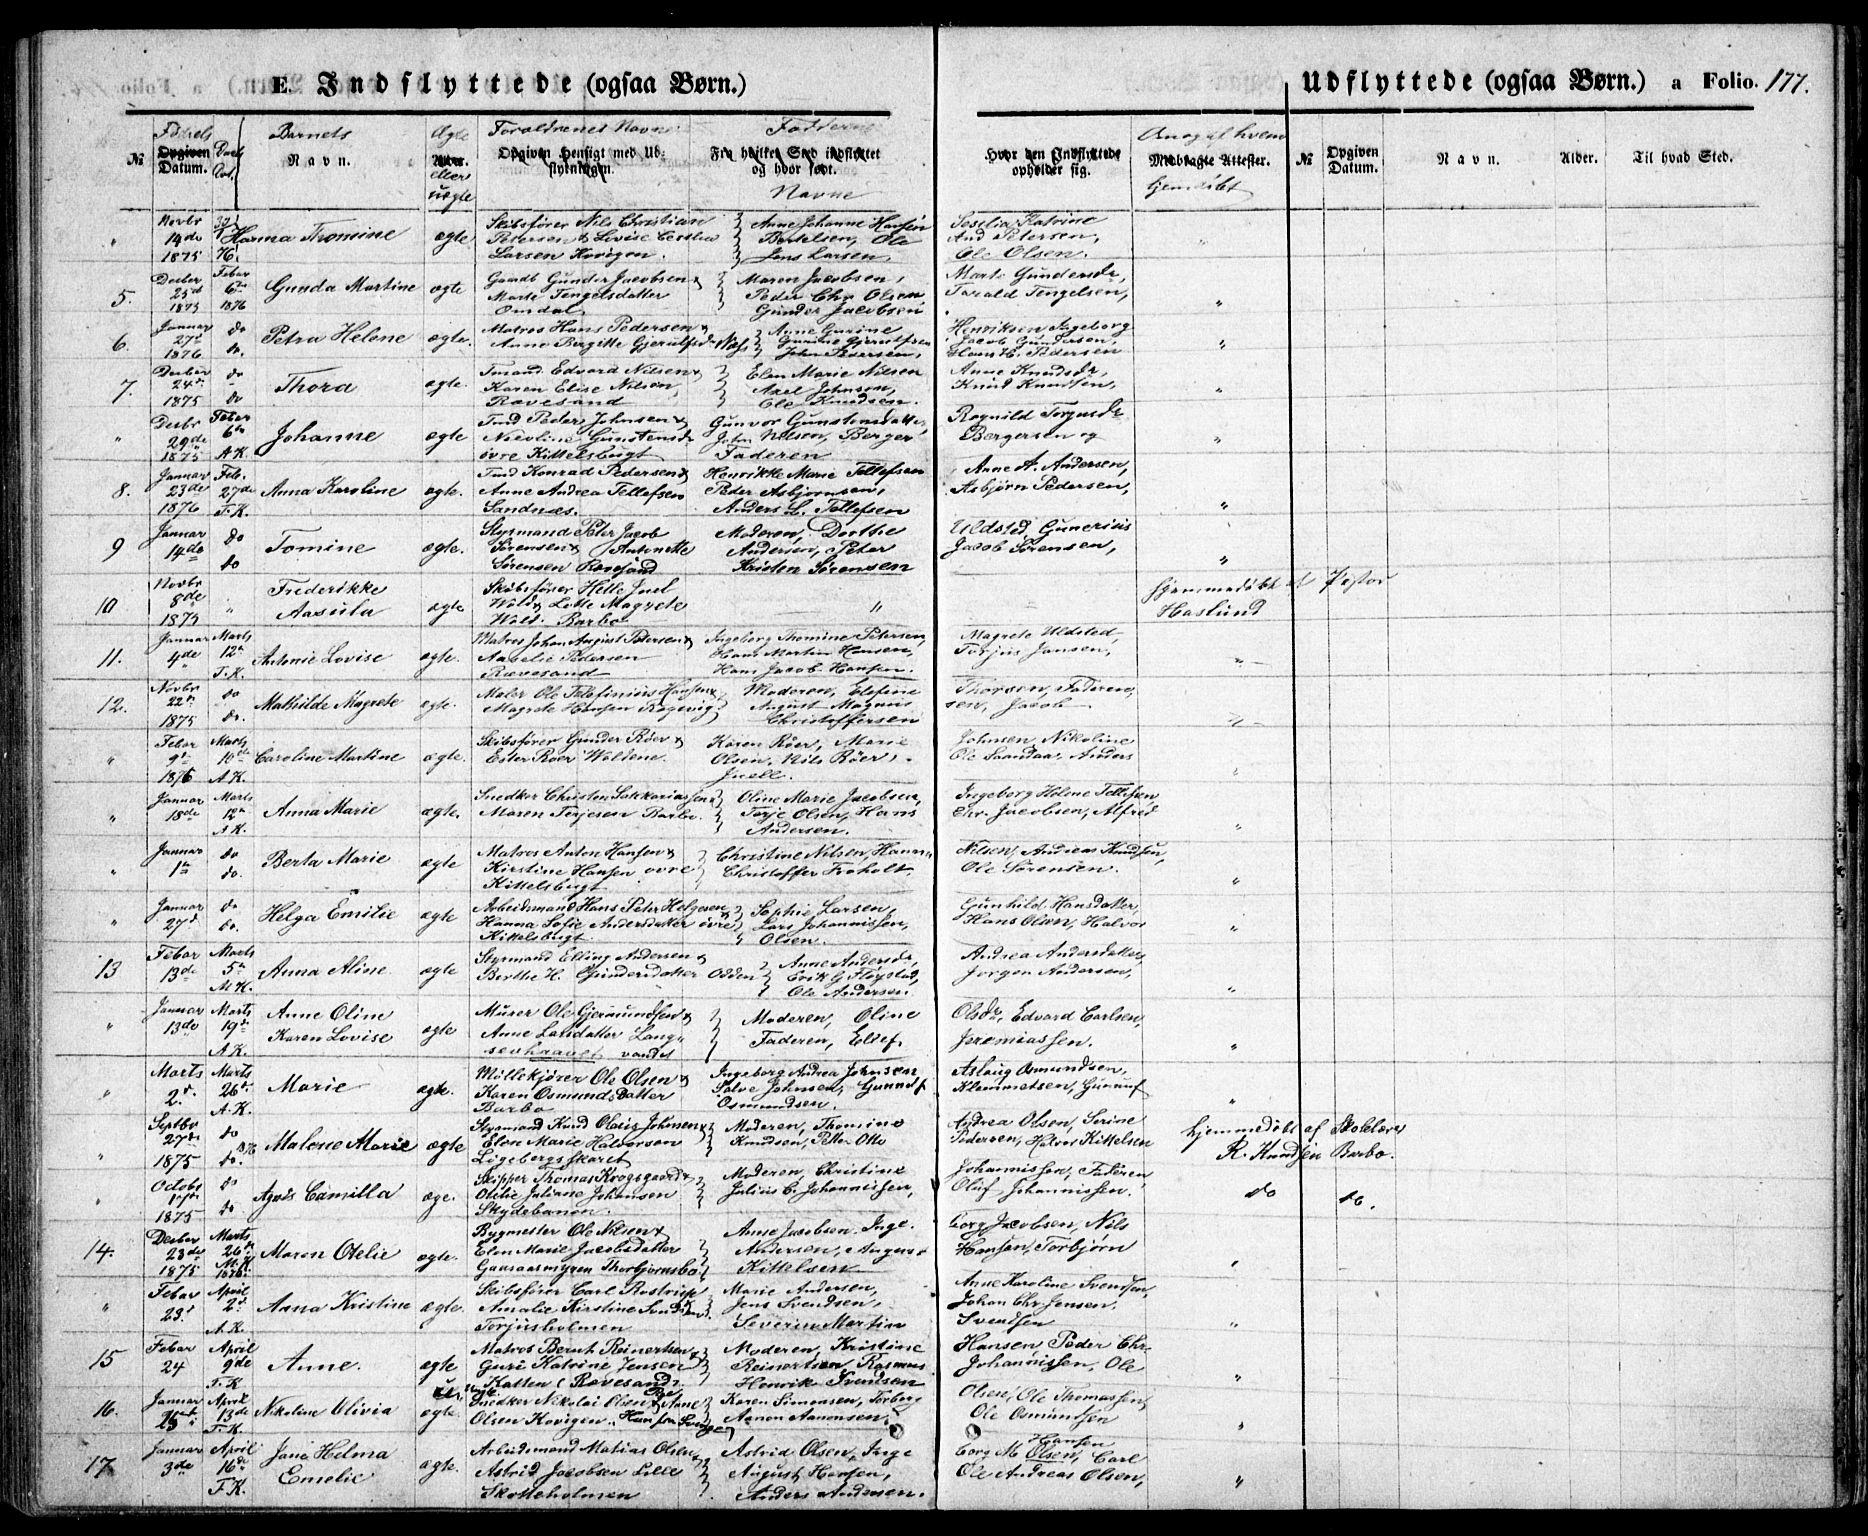 E. Indflyttede (ogsaa Børn.)
Udflyttede (ogsaa Børn.) a Folio. 177.
№ Fødsels Opgiven Datum. Daab Dat. Barnets Navn. Ægte Alder. eller uægte Forældrenes Navne Opgiven Hensigt med Udflytningen. Faddernes Fra hvilket Sted indflyttet og hvor født. Navne Hvor den Indflyttede opholder sig. Om og af hvem Medbragte Attester. hjemdøbt № Opgiven Datum. Navn. Alder. Til hvad Sted.
" Novbr 14de 1875 H. Harma Thomine ægte
Skibsfører Nils Christian
Petersen & Lovise Cecilia
Larsen Kovigen.
Anne Johanne Hansen
Bertelsen, Ole
Jens Larsen,
Seselia Katrine
And Petersen,
Ole Olsen.
"
5. Decbr 25d 1875 Febar 6te 1876 Gunda Martine ægte
Gaadb Gunder Jacobsen &
Marte Tengelsdatter
Omdal.
Maren Jacobsen,
Peder Chr Olsen,
Gunder Jacobsen
Marte Gundersdr,
Tarald Tengelsen,
"
6. Januar 27d 1876 do do. Petra Helene ægte.
Matros Hans Pedersen &
Anne Bergitte Gjerulfsdr Næs
Anne Gurine
Gurine Gjerulfsen
John Pedersen,
Henriksen Ingeborg
Jacob Gundersen,
Hans H. Pedersen
"
7. Decbr 24d 1875 do do Thora ægte.
Tmand. Edvard Nilsen &
Karen Elise Nilsen,
Rævesand
Elen Marie Nilsen
Axel Johnsen,
Ole Knudsen.
Anne Knudsdr,
Knud Knudsen,
"
" Decbr 29de 1875 Febar 6te A.K. Johanne ægte
Tmd Peder Johnsen &
Nicoline Gunstensdr
øvre Kittelsbugt
Gunvor Gunstensdatter,
John Nilsen, Berger
Faderen
Ragnild Torgersdr
Bergersen og
"
8. Januar 23de 1876 Feb. 27de T.K. Anna Karoline ægte.
Tmd Konrad Pedersen &
Anne Andrea Tellefsen
Sandnæs.
Henrikke Marie Tellefsen
Peder Asbjørnsen,
Anders L. Tellefsen
Anne A. Andersen,
Asbjørn Pedersen,
"
9 Januar 14de do do Tomine ægte.
Styrmand Peter Jacob
Sørensen & Antonette
Sørensen Rævesand
Moderen, Dorthe
Andersen, Peter
Kristen Sørensen
Uldsted, Gunerius
Jacob Sørensen,
"
10 Novbr 8de 1875 " Frederikke
Aasula ægte
Skibsfører Helle Juel
Wold & Lette Magrete
Wold. Barbo
"
hjemmedøbt af Pastor
Haslund
11. Januar 4de Marts 12te T.K. Antonie Lovise ægte.
Matros Johan August Petersen &
Aavelie Pedersen
Rævesand
Ingeborg Thomine Petersen,
Hans Martin Hansen,
Hans Jacob Hansen.
Magrete Uldsted,
Torjus Jansen,
"
12. Novbr 22de 1875 do do. Mathilde Magrete ægte.
Maler Ole Hansen &
Magrete Hansen Rægevig
Moderen, Elefine
August Magnus
Christoffersen
Thorsen, Faderen,
sen, Jacob
"
" Febar 9d 1876 Marts 10de A.K. Caroline Martine ægte.
Skibsfører Gunder Røer &
Ester Røer Woldene
Karen Røer, Marie
Olsen, Nils Røer,
Juell.
Johnsen, Nikoline
Ole Anders
"
" Januar 18de Marts 12te A.K. Anna Marie ægte.
Snedker Christen Sakkariassen
Maren Terjesen Barbo.
Oline Marie Jacobsen,
Torje Olsen, Hans
Andersen.
Ingeborg Helene Tellefsen
Chr. Jacobsen, Alfred
"
" Januar 1te do do. Berta Marie ægte
Matros Anton Hansen &
Kirstine Hansen øvre
Kittelsbugt
Christine Nilsen, Hanna
Christoffer Froholt.
Nilsen, Andreas Knudsen,
Ole Sørensen.
"
" Januar 27d do do. Helga Emilie ægte
Arbeidsmand Hans Peter Helgesen &
Hanna Sofie Andersdatter øvre
Kittelsbugt.
Sophie Larsen,
Lars Johannissen,
Olsen.
Gunhild Hansdatter,
Hans Olsen, Halvor
"
13 Febar 13de Marts 5te M.K. Anna Aline ægte
Styrmand Elling Andersen &
Berthe H. Gundersdatter Odden
Anne Andersdr,
Erik G Fløystad,
Ole Andersen
Andrea Andersdatter,
Jørgen Andersen,
"
" Januar 13de Marts 19de A.K. Anne Oline
Karen Lovise ægte
Murer Ole Gjermundsen &
Anne Larsdatter Lang-
sevhraavet vandet
Moderen, Oline
Faderen, Ellef
Olsdr, Edvard Carlsen,
Jeremiassen.
"
" Marts 2d. Marts 26d. A.K. Marie ægte.
Møllekjører Ole Olsen &
Karen Osmunds Datter
Barbo
Ingeborg Andrea Johnsen
Salve Johnsen, Gunulf
Osmundsen.
Aslaug Osmundsen,
Klemmetsen, Gunulf
"
" Septbr 27de 1875 do do. 1876 Malene Marie ægte
Styrmand Knud Olaus Johnsen &
Elen Marie Halvorsen
Løgebergsskaret
Moderen, Thomine
Knudsen, Petter Otto
Andrea Olsen, Serine
Pedersen, Halvor Kittelsen
hjemmedøbt af Skolelærer
R. Knudsen Barbo.
" Octobr 17de 1875 do do Agnes Camilla ægte.
Skipper Thomas Krogsgaard &
Otelie Juliane Johansen
Skydebanen.
Moderen, Christine
Julius C. Johannissen,
Johannissen, Faderen
Oluf Johannissen.
do do.
14. Decbr 23de 1875 Marts 26de M.K. 1876 Maren Otelie ægte.
Bygmester Ole Nilsen &
Elen Marie Jacobsdatter
Gaasaasmyren Thorbjørnsbo
Anne Jacobsen, Inge
Andersen, August
Kittelsen
borg Jacobsen, Nils
Hansen, Torbjørn
"
" Febar 23d April 2d. A.K. Anna Kristine ægte.
Skibsfører Carl Rostrup
Amalie Kirstine Svendsen
Torjusholmen
Marie Andersen,
Jens Svendsen,
Severin Martin
Anne Karoline Svendsen,
Johan Chr. Jensen,
Svendsen
"
15 Febar 24 April 9de T.K. Anne. ægte
Matros Bernt Reinertsen &
Guri Katrine Jensen
Katten (Rævesand)
Moderen, Kristine
Reinertsen Rasmus
Henrik Svendsen
Hansen, Peder Chr.
Johannissen, Ole
"
16. Januar 25de April 13de T.K. Nikoline Olivia uægte ægte
Snedker Nikolai Olsen & Anne
Olsen Kovigen. Han fra Sverige
Karen Simonsen, Torborg
Aanon Aanonsen.
Olsen, Ole Thomassen
Ole Osmundsen
"
17. Januar 3de April 16de T.K. Jana Helma
Emelie ægte.
Arbeidsmand Matias Olsen &
Astrid Jacobsen Lille
Skotteholmen
Astrid Olsen, Inge
August Hansen,
Anders Andersen.
borg M. Hansen Olsen, Carl
Ole Andreas Olsen,
"